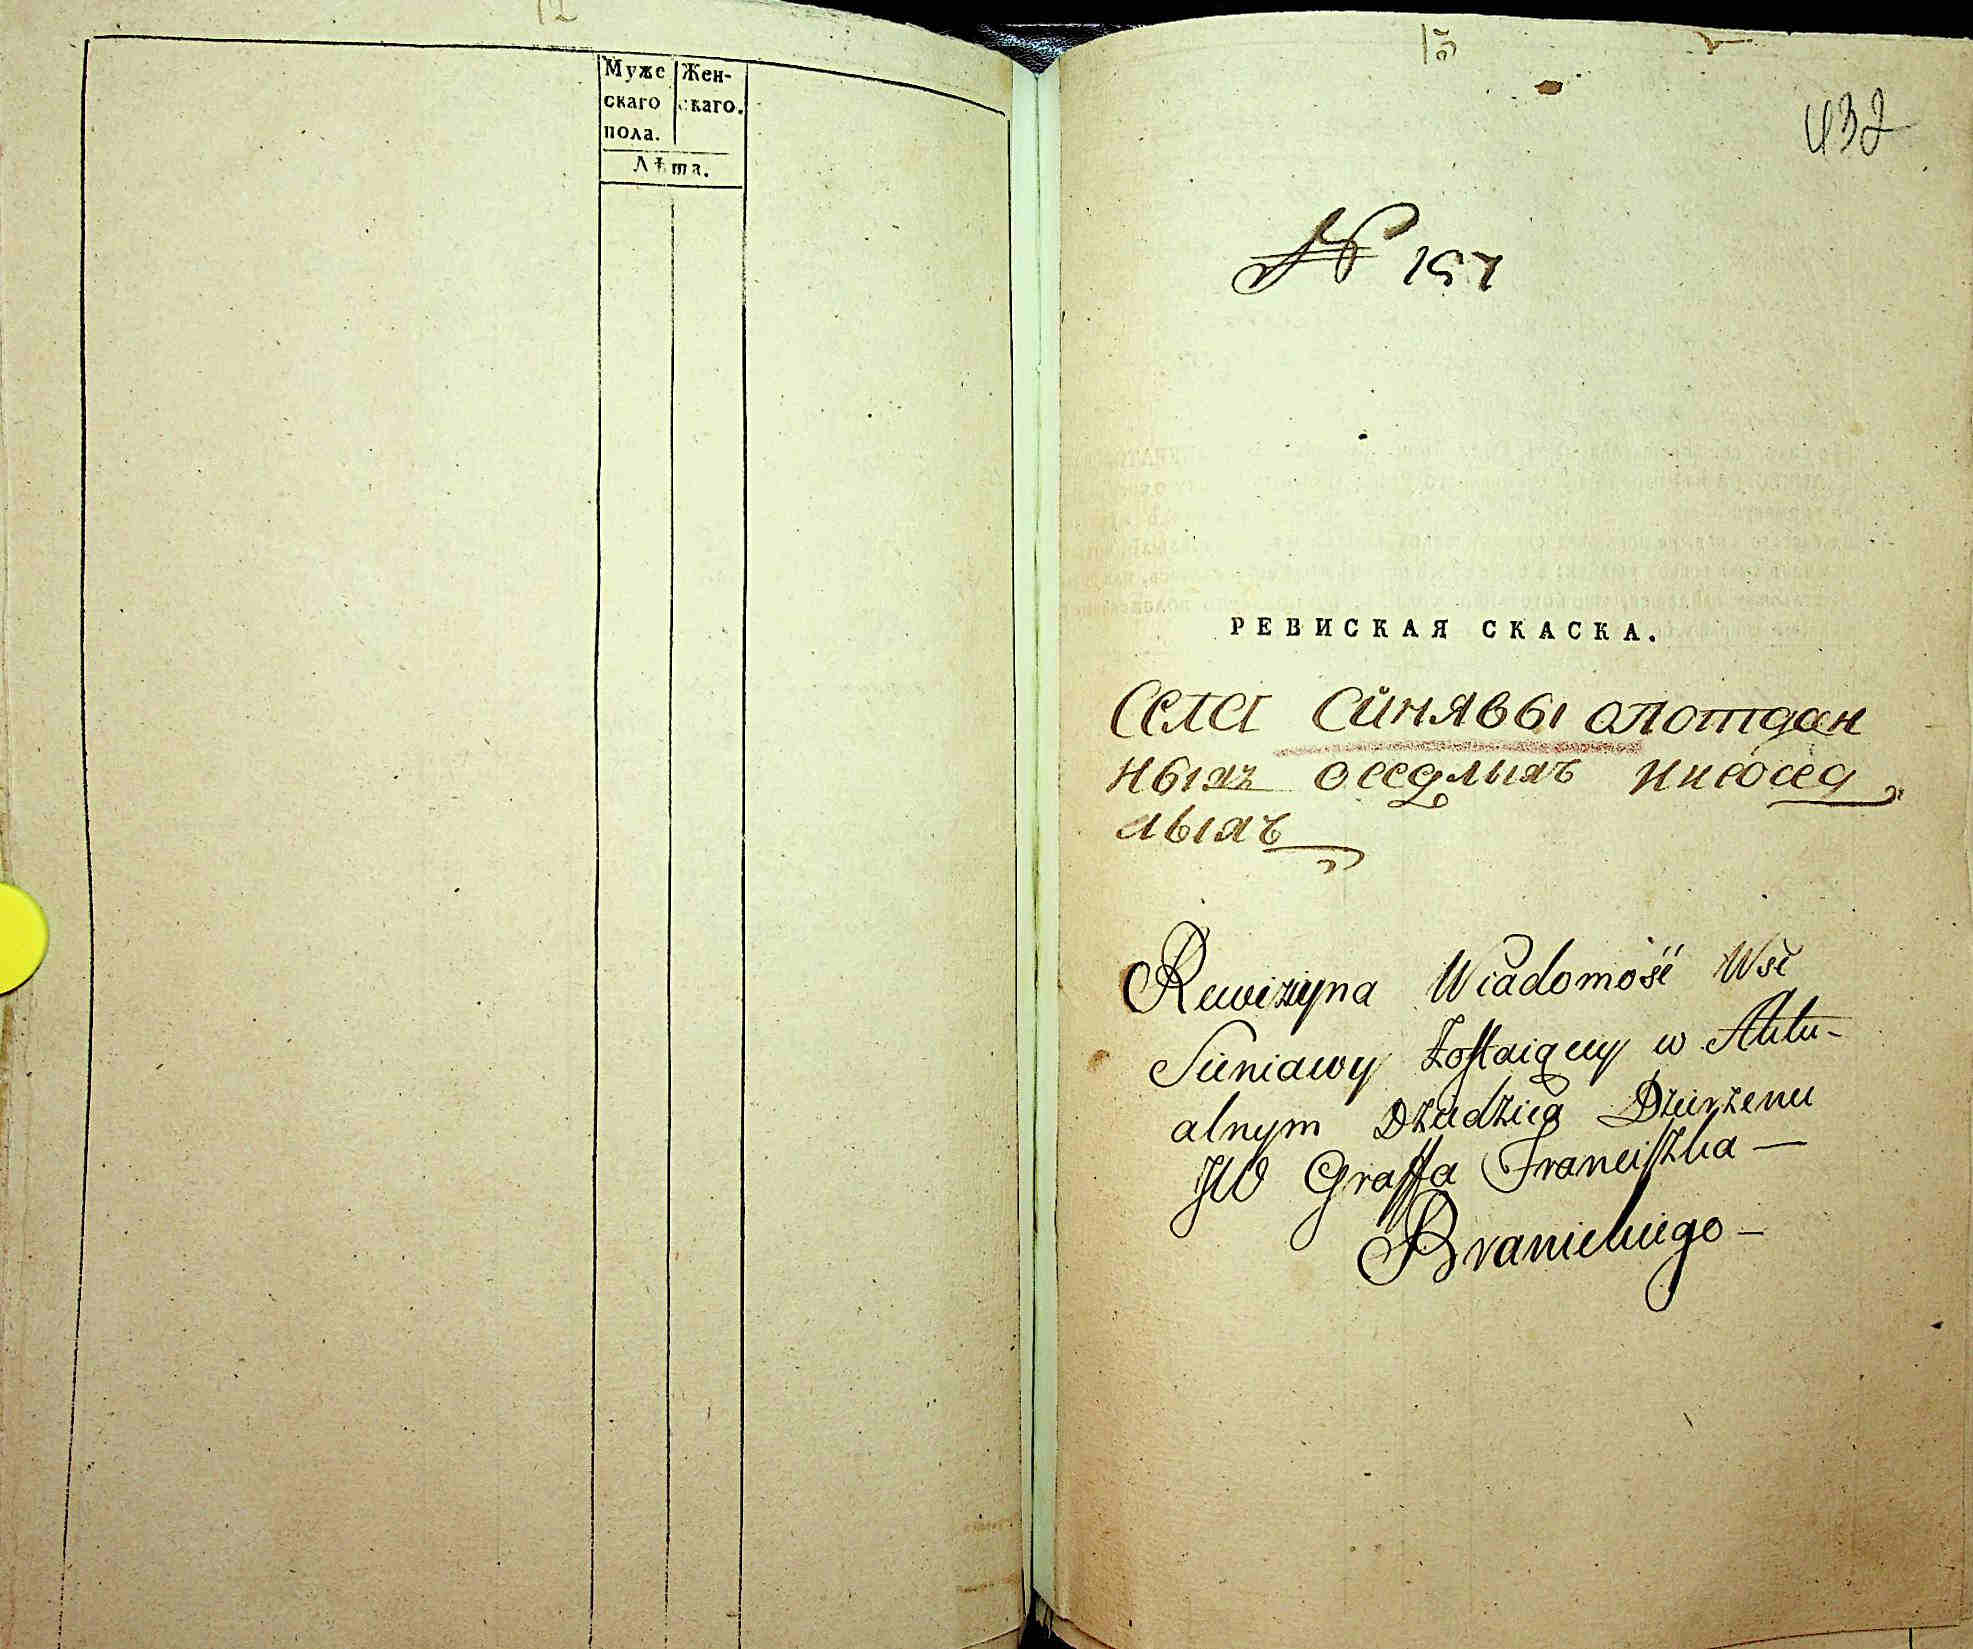 12
Муже Жен-
скаго скаго.
пола.
Лѣта.
15
432
№ 157
РЕВИСКАЯ СКАСКА.
Села Синявы оподдан
ныхъ оседлыхъ
лыхъ
Rewizyyna Wiadomość Wsi
Sieniawy Zostaiącey w Aktu-
alnym Dziedzica Dzierzeniu
JW Graffa Franciszka —
Branickiego —